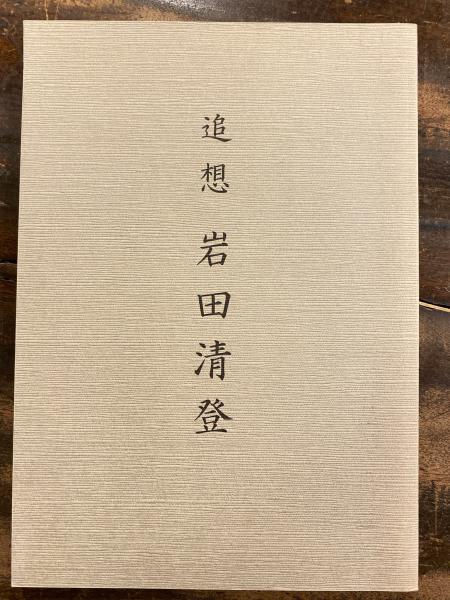 追想 岩田清登